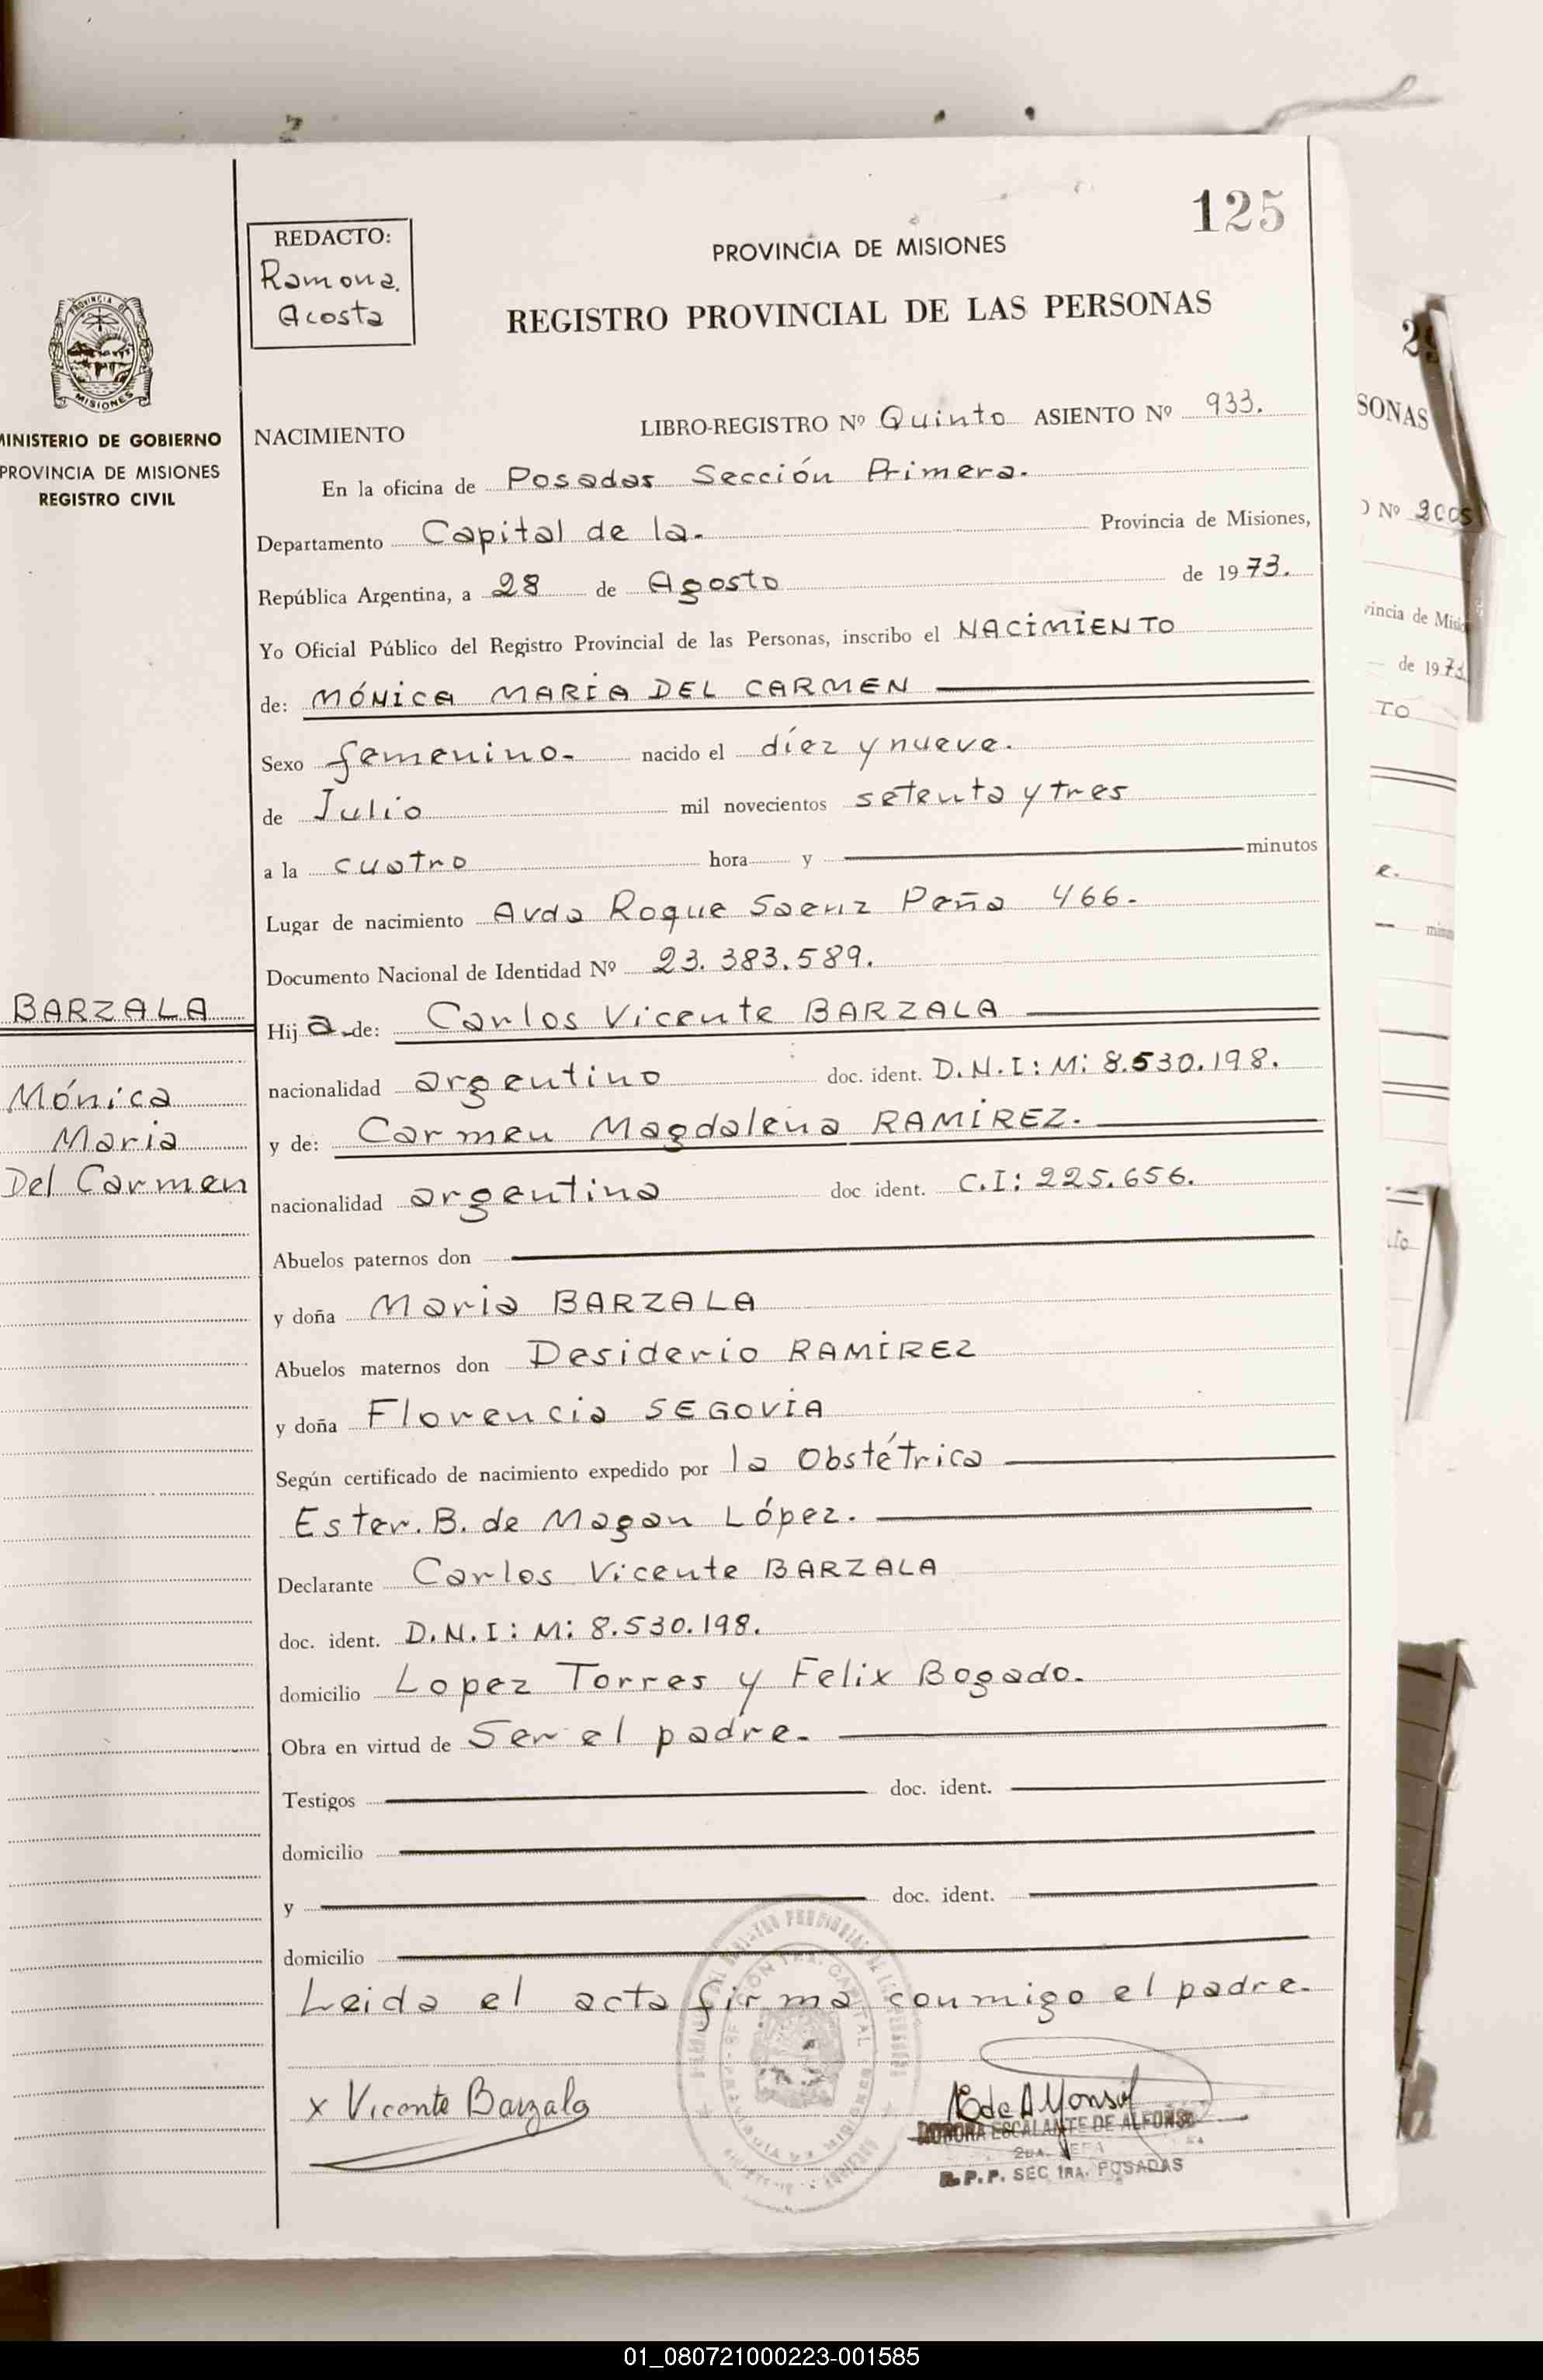 125
REDACTO:
Ramona.
Acosta
PROVINCIA DE MISIONES
REGISTRO PROVINCIAL DE LAS PERSONAS
MINISTERIO DE GOBIERNO
PROVINCIA DE MISIONES
REGISTRO CIVIL
NACIMIENTO LIBRO-REGISTRO Nº Quinto ASIENTO Nº 933.
En la oficina de Posadas Sección Primera.
Departamento Capital de la. Provincia de Misiones,
República Argentina, a 28 de Agosto de 1973.
Yo Oficial Público del Registro Provincial de las Personas, inscribo el NACIMIENTO
de: MÓNICA MARÍA DEL CARMEN
Sexo femenino. nacido el díez y nueve.
de Julio mil novecientos setenta y tres
a la cuatro hora y minutos
Lugar de nacimiento Avda Roque Saenz Peña 466.
Documento Nacional de Identidad Nº 23.383.589.
BARZALA
Hija de: Carlos Vicente BARZALA
nacionalidad argentino doc. ident. D.N.I: M: 8.530.198.
Mónica
Maria
Del Carmen
y de: Carmen Magdalena RAMÍREZ.
nacionalidad argentina doc ident. C.I: 225.656.
Abuelos paternos don
y doña Maria BARZALA
Abuelos maternos don Desiderio RAMÍREZ
y doña Florencia SEGOVIA
Según certificado de nacimiento expedido por la Obstétrica
Ester. B. de Magan López.
Declarante Carlos Vicente BARZALA
doc. ident. D.N.I: M: 8.530.198.
domicilio Lopez Torres y Felix Bogado.
Obra en virtud de Ser el padre.
Testigos doc. ident.
domicilio
y doc. ident.
domicilio
Leida el acta firma conmigo el padre.
x Vicente Barzala
ESCALANTE DE ALFONSO
2DA. JEFA
R.P.P. SEC 1RA. POSADAS
SONAS
Nº
vincia de Misio
de 1973
TO
01_080721000223-001585